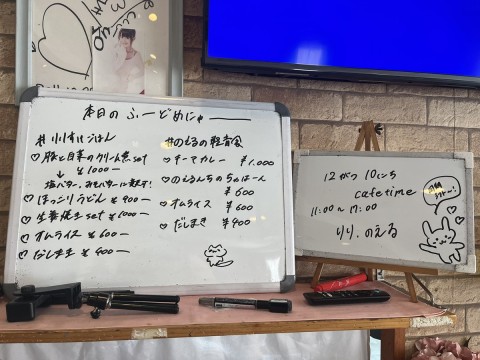 本日の ふーどめにゅー
♡豚と白菜のクリーム煮set
¥1000ー
♡ほっこりうどん ¥900ー
♡生姜焼きset ¥1000ー
♡オムライス ¥600ー
♡だしまき ¥400ー
#のえるの軽音食
♡キーマカレー ¥1.000
♡のえるんちの
¥600
♡オムライス
¥600
♡だしまき ¥400
12がつ 10にち
cafetime
11:00~17:00
りり.のえる